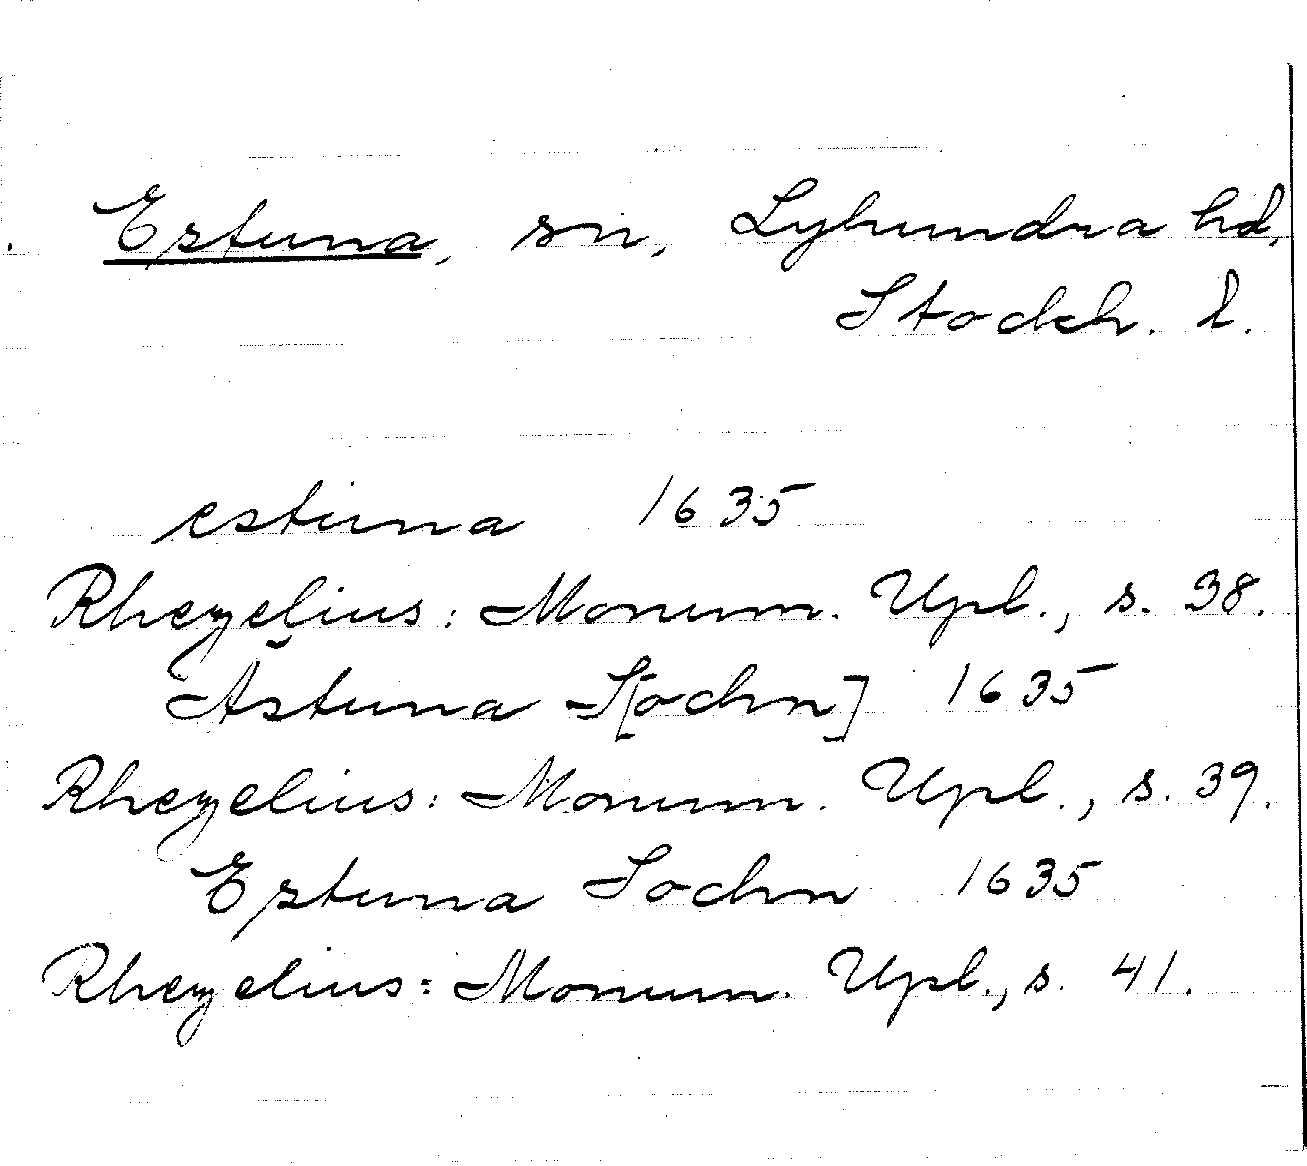 Estuna, sn, Lyhundra hd,
Stockh. l.
estuna 1635
Rhezelius: Monum. Upl., s. 38.
Ästuna S[ochn] 1635
Rhezelius: Monum. Upl., s. 39.
Estuna Sochn 1635
Rhezelius: Monum. Upl., s. 41.